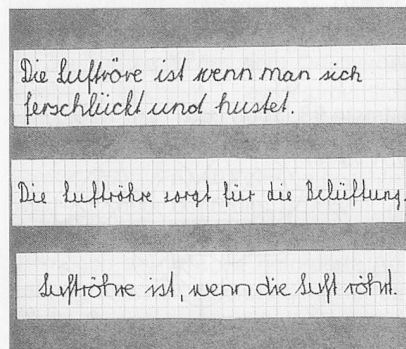 Die Luftröve ist wenn man sich
ferschlückt und hustet.
Die Luftröhre sorgt für die Belüftung.
Luftröhre ist, wenn die Luft röhrt.